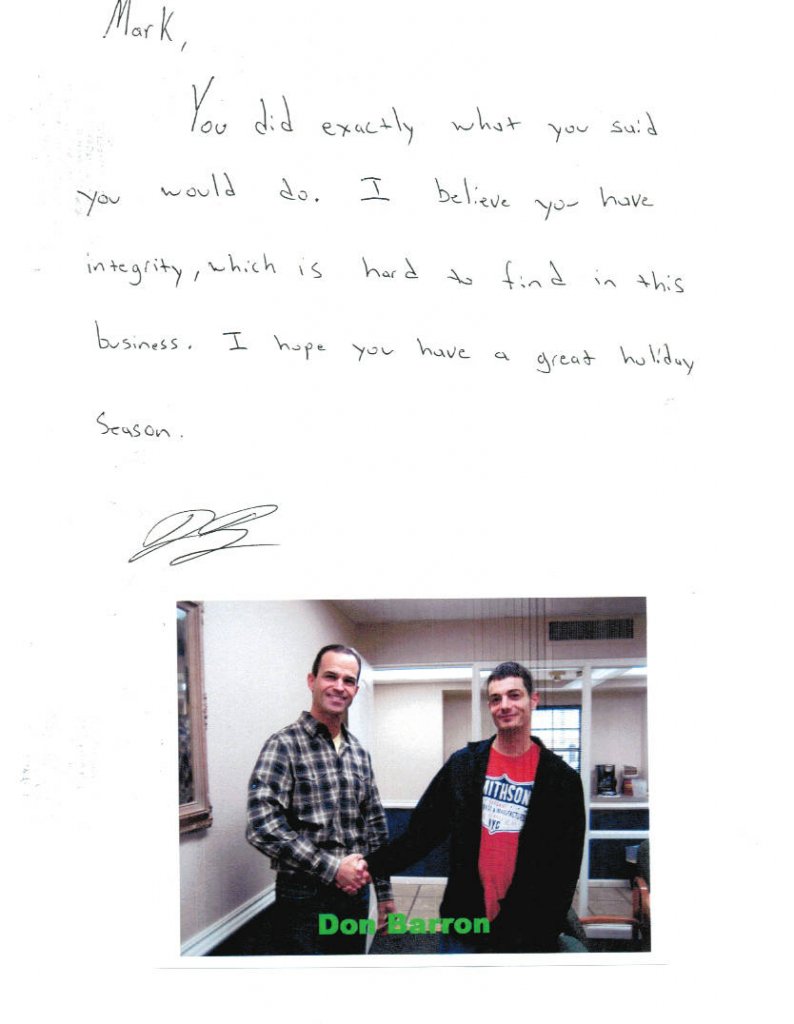 Mark,
You did exactly what you said
you would do. I believe you have
integrity, which is hard to find in this
business. I hope you have a great holiday
Season.
MITHSON
NYC
Don Barron